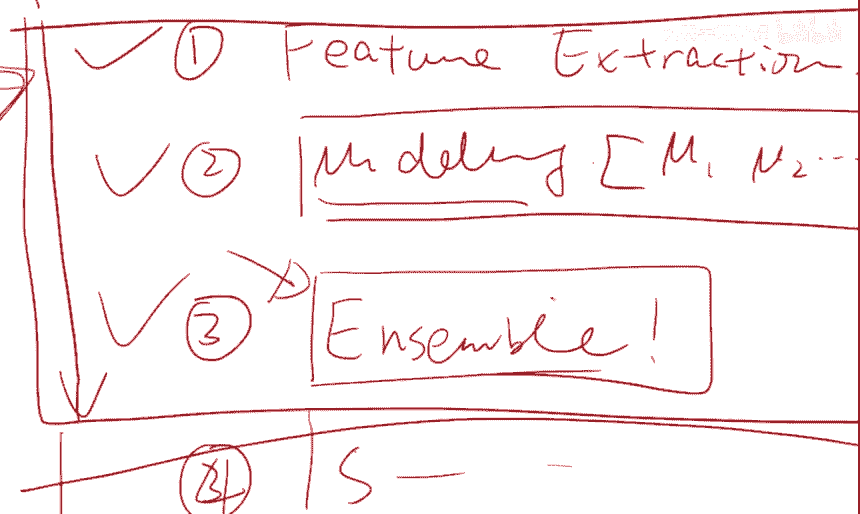 ① Feature Extraction
② Modeling [M₁ M₂ ...
③ Ensemble!
④ S